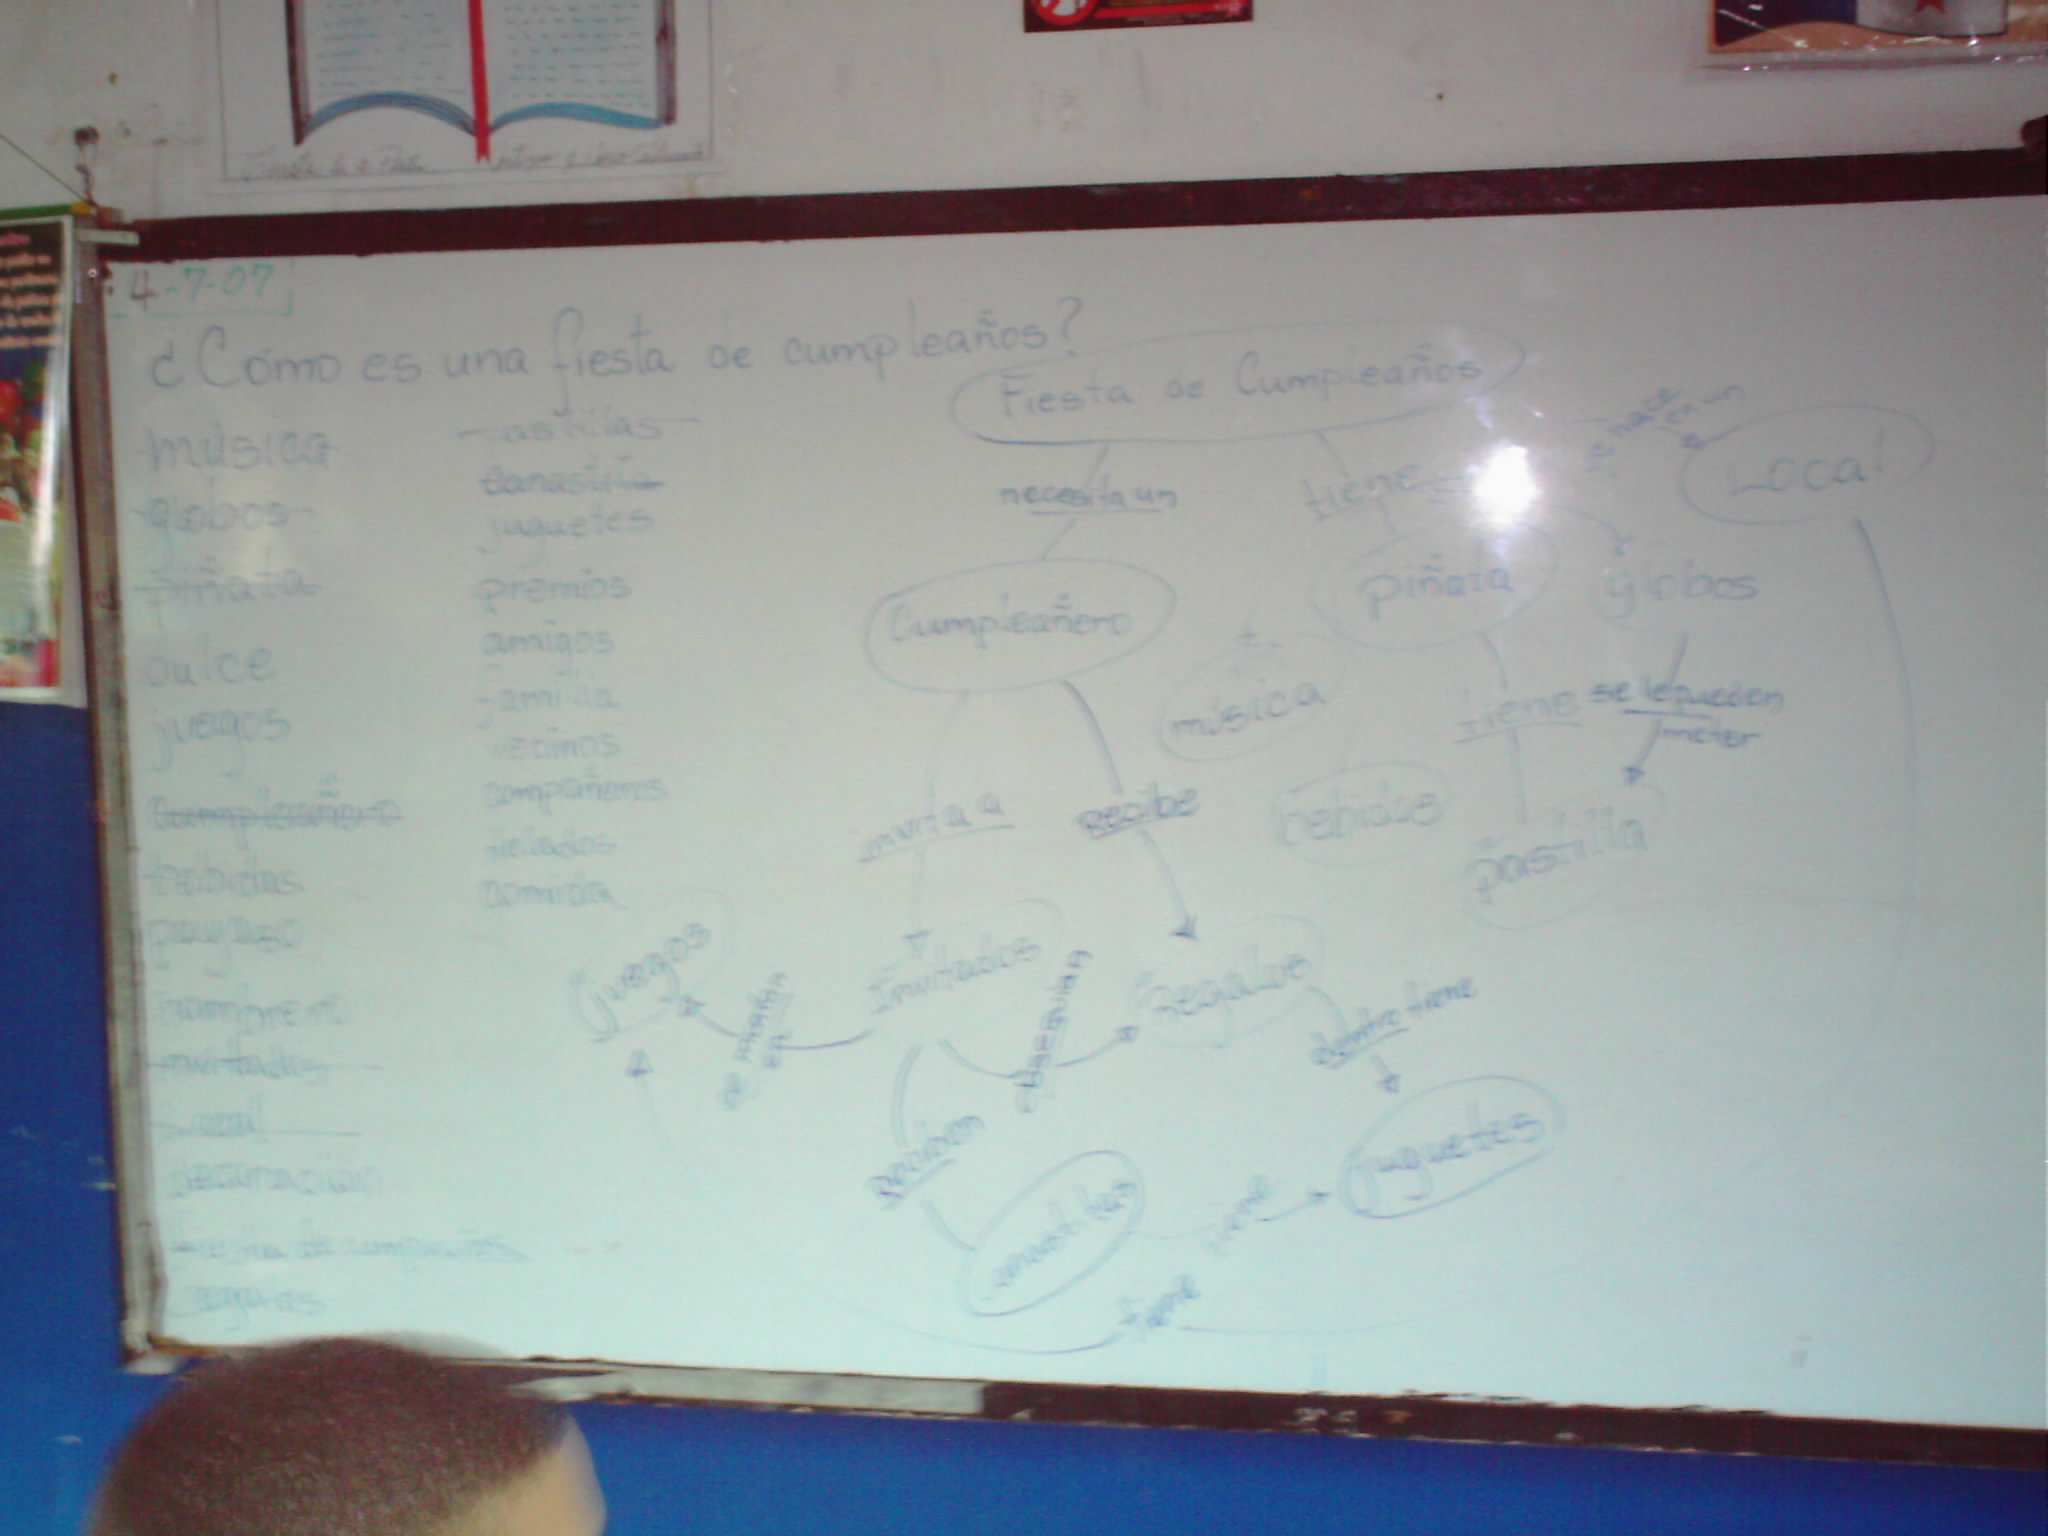 4-7-07
¿Cómo es una fiesta de cumpleaños?
música
globos
piñata
dulce
juegos
Cumpleañero
bebidas
payaso
invitados
Local
decoración
fiesta de cumpleaños
pastillas
canastita
juguetes
premios
amigos
familia
vecinos
compañeros
helados
comida
Fiesta de Cumpleaños
necesita un
tiene
se hace
en un
Local
Cumpleañero
piñata
globos
música
tiene
se le pueden
meter
bebidas
pastilla
invita a
recibe
juegos
Invitados
Regalos
obsequian
dentro tiene
reciben
juguetes
tiene
tiene